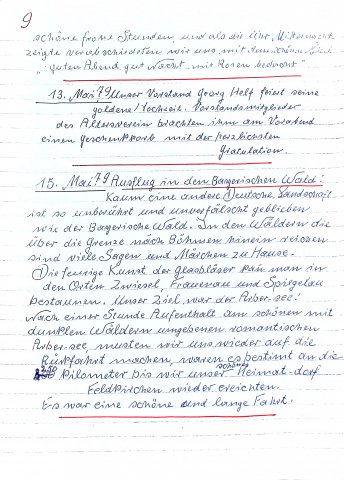 9
schöne frohe Stunden, und als die Uhr Mitternacht
zeigte verabschiedeten wir uns mit dem schönen Lied
"Guten Abend gut Nacht mit Rosen bedacht"
13. Mai 79 Unser Vorstand Georg Helf feiert seine
goldene Hochzeit. Vorstandsmitglieder
des Altersverein brachten ihm am Vorabend
einen Geschenkkorb mit der herzlichsten
Gratulation.
15. Mai 79 Ausflug in den Bayerischen Wald!
Kaum eine andere Deutsche Landschaft
ist so unberührt und unverfälscht geblieben
wie der Bayerische Wald. In den Wäldern die
über die Grenze nach Böhmen hinein reichen
sind viele Sagen und Märchen zu Hause.
Die feurige Kunst der Glasbläser kan man in
den Orten Zwiesel, Frauenau und Spiegelau
bestaunen. Unser Ziel war der Arber-see!
Nach einer Stunde Aufenthalt am schönen mit
dunklen Wäldern umgebenen romantischen
Arber-see, musten wir uns wieder auf die
Rückfahrt machen, waren es bestimt an die
350 Kilometer bis wir unser schönes Heimat-dorf
Feldkirchen wieder ereichten.
Es war eine schöne und lange Fahrt.